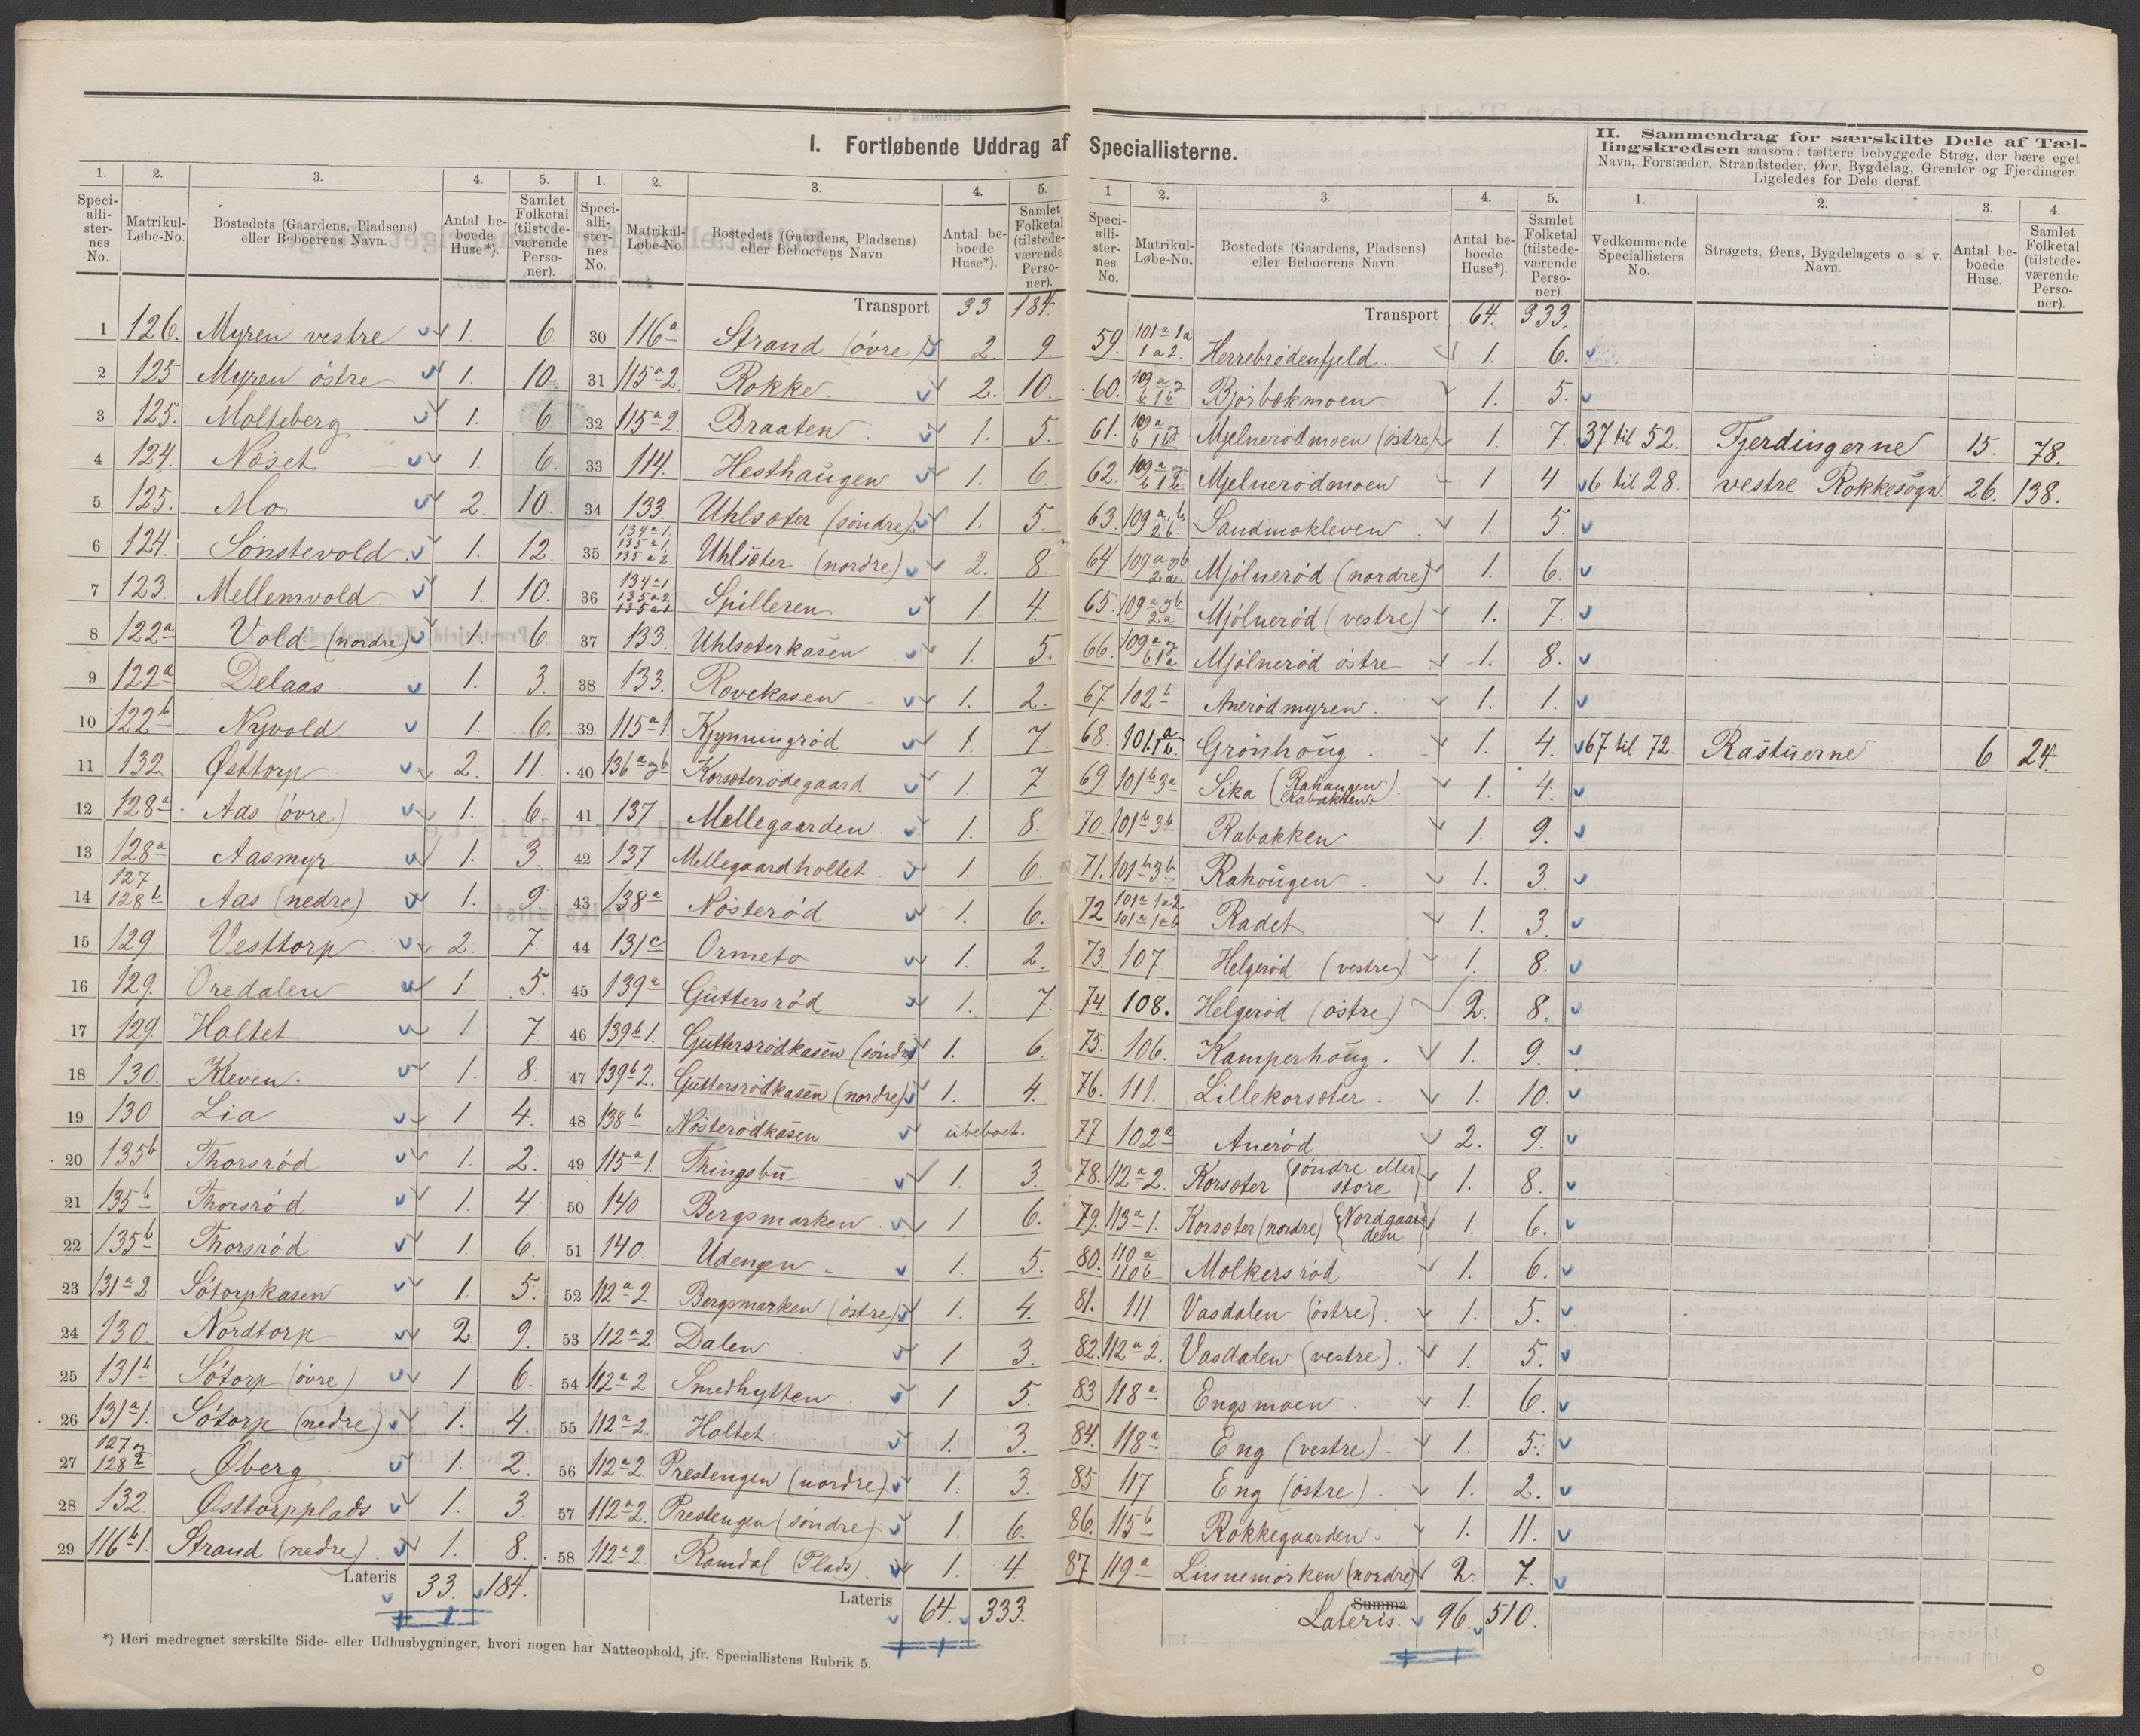 I. Fortløbende Uddrag af Speciallisterne.
II. Sammendrag for særskilte Dele af Tæl-
lingskredsen saasom: tættere bebyggede Strøg, der bære eget
Navn, Forstæder, Strandsteder, Øer, Bygdelag, Grender og Fjerdinger.
Ligeledes for Dele deraf.
1. 2. 3. 4. 5.
Speci-alli-ster-nes No. Matrikul-Løbe-No. Bostedets (Gaardens, Pladsens) eller Beboerens Navn. Antal be-boede Huse*). Samlet Folketal (tilstede-værende Perso-ner).
1 126. Myren vestre 1. 6.
2 125 Myren östre 1. 10.
3 125. Molteberg 1. 6
4 124. Næset 1. 6.
5 125. Mo 2. 10.
6 124. Sønstevold 1. 12
7 123. Mellemvold 1. 10.
8 122a Vold (nordre) 1. 6
9 122a Delaas 1. 3.
10 122b Nyvold 1. 6.
11 132. Østtorp 2. 11.
12 128a Aas (övre) 1. 6.
13 128a Aasmyr 1. 3.
14 127 128b Aas (nedre) 1. 9.
15 129. Vesttorp 2. 7.
16 129. Oredalen 1. 5.
17 129. Holtet 1 7
18 130. Kleven. 1. 8.
19 130 Lia 1 4.
20 135b Thorsrød 1. 2.
21 135b Thorsrød 1. 4.
22 135b Thorsrød 1. 6.
23 131a2 Søtorpkasen 1. 5.
24 130. Nordtorp 2 9.
25 131b Søtorp (övre) 1. 6.
26 131a1. Søtorp (nedre) 1. 4.
27 127 og 128 Øberg 1. 2.
28 132. Østtorpplads 1. 3.
29 116b1. Strand (nedre) 1. 8.
Lateris 33. 184.
1. 2. 3. 4. 5.
Speci-alli-ster-nes No. Matrikul-Løbe-No. Bostedets (Gaardens, Pladsens) eller Beboerens Navn. Antal be-boede Huse*). Samlet Folketal (tilstede-værende Perso-ner).
Transport 33 184.
30 116a Strand (övre) 2. 9.
31 115a2. Rokke. 2. 10.
32 115a2 Braaten. 1. 5.
33 114. Hesthaugen 1. 6.
34 133. Uhlsæter (søndre) 1. 5.
35 134a1. 135a1. 135a2. Uhlsæter (nordre) 2. 8.
36 134a1. 135a2 135a1 Spilleren 1. 4.
37 133. Uhlsæterkasen 1. 5.
38 133. Rævekasen 1. 2.
39 115a1. Kjynningrød 1. 7.
40 136a og b Korsæterødegaard 1. 7
41 137 Mellegaarden 1. 8.
42 137 Mellegaardholtet 1. 6.
43 138a Nøsterød 1. 6.
44 131c Ormetø 1. 2.
45 139a Guttersrød 1. 7.
46 139b1. Guttersrødkasen (søndre) 1. 6.
47 139b2. Guttersrødkasen (nordre) 1. 4.
48 138b Nøsterødkasen ubeboet.
49 115a1. Thingsbu 1. 3.
50 140 Bergsmarken 1. 6.
51 140. Udengen 1. 5.
52 112a2 Bergsmarken (östre) 1. 4.
53 112a2 Dalen 1 3.
54 112a2 Smedhytten 1 5.
55 112a2. Holtet 1. 3.
56 112a2. Prestengen (nordre) 1. 3.
57 112a2. Prestengen (søndre) 1. 6.
58 112a2. Ramdal (Plads) 1. 4
Lateris 64. 333.
*) Heri medregnet særskilte Side- eller Udhusbygninger, hvori nogen har Natteophold, jfr. Speciallistens Rubrik 5.
1 2. 3 4. 5.
Speci-alli-ster-nes No. Matrikul-Løbe-No. Bostedets (Gaardens, Pladsens) eller Beboerens Navn. Antal be-boede Huse*). Samlet Folketal (tilstede-værende Perso-ner).
Transport 64. 333.
59. 101a1a 1a2. Herrebrødenfjeld. 1. 6.
60. 109a og b1b Bjørbekmoen 1. 5.
61. 109a og b1b Mjølnerødmoen (östre) 1. 7.
62. 109a og b1b Mjølnerødmoen 1 4
63. 109a, b, 2b. Sandmokleven 1. 5.
64. 109a og b 2a. Mjølnerød (nordre) 1. 6.
65. 109a og b 2a Mjølnerød (vestre) 1. 7.
66. 109a og b1a Mjølnerød östre 1. 8.
67 102b Anerødmyren. 1. 1.
68. 101.1a b. Grønhøug 1. 4.
69. 101b3a Sika (Rahaugen Rabakken). 1. 4.
70. 101b3b Rabakken 1. 9.
71. 101b3b Rahougen 1. 3.
72 101a1a2. 101a1ab Radet 1. 3.
73. 107 Helgerød (vestre) 1. 8.
74. 108. Helgerød (östre) 2. 8.
75. 106. Kamperhøug. 1. 9.
76. 111. Lillekorsæter. 1. 10.
77 102a Anerød 2. 9.
78. 112a2. Korsæter {søndre eller store} 1. 8.
79. 113a1. Korsæter (nordre) {Nordgaardeln} 1. 6.
80. 110a 110b Molkersrød 1. 6.
81. 111. Vasdalen (östre). 1. 5.
82. 112a2. Vasdalen (vestre). 1. 5.
83 118a Engsmoen 1. 6.
84. 118a Eng (vestre). 1. 5.
85 117 Eng (östre). 1. 2.
86. 115b Rokkegaarden. 1. 11.
87 119a Linnemørken (nordre) 2. 7.
Summa
Lateris. 96. 510.
1. 2. 3. 4.
Vedkommende Speciallisters No. Strøgets, Øens, Bygdelagets o. s. v. Navn. Antal be-boede Huse. Samlet Folketal (tilstede-værende Perso-ner).
37 til 52. Fjerdingerne 15. 78.
6 til 28. vestre Rokkesogn 26. 138.
67 til 72. Rastuerne 6 24.